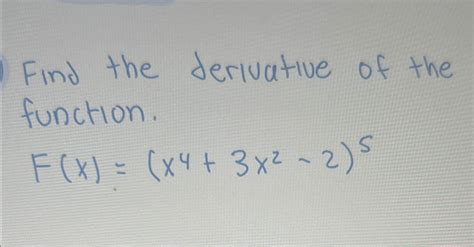 Find the derivative of the
function.
F(x) = (x⁴ + 3x² - 2)⁵